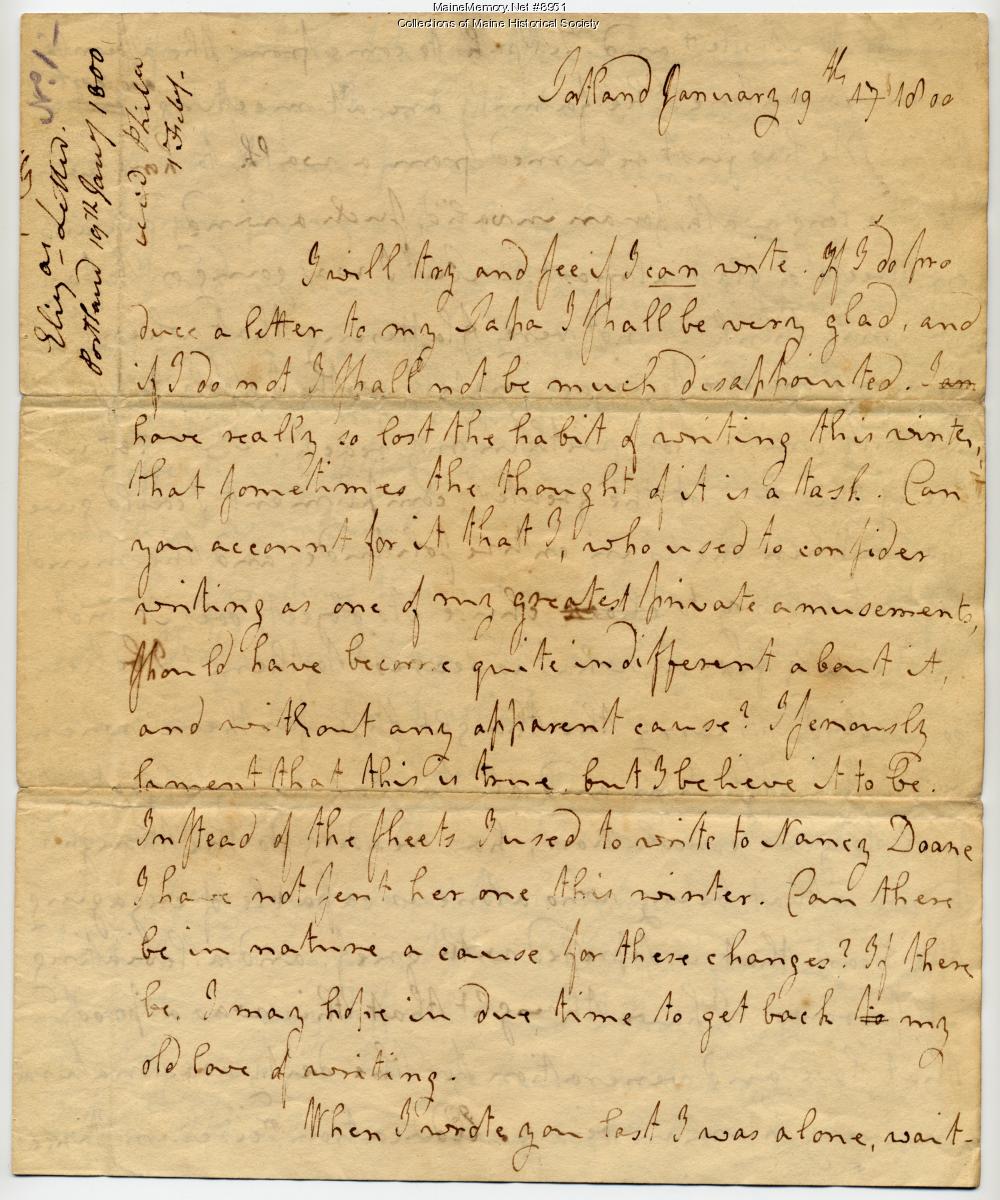 MaineMemory.Net #8951
Collections of Maine Historical Society
No. 1-
Eliza's Letter.
Portland 19th Jany 1800
recd Phila
4 Feby.
Portland January 19th 17 1800
I will try and see if I can write. If I do pro
duce a letter to my Papa I shall be very glad, and
if I do not I shall not be much disappointed. I am
have really so lost the habit of writing this winter,
that sometimes the thought of it is a task. Can
you account for it that I, who used to consider
writing as one of my greatest private amusements,
should have become quite indifferent about it,
and without any apparent cause? I seriously
lament that this is true, but I believe it to be.
Instead of the sheets I used to write to Nancy Doane
I have not sent her one this winter. Can there
be in nature a cause for these changes? If there
be, I may hope in due time to get back to my
old love of writing.
When I wrote you last I was alone, wait-